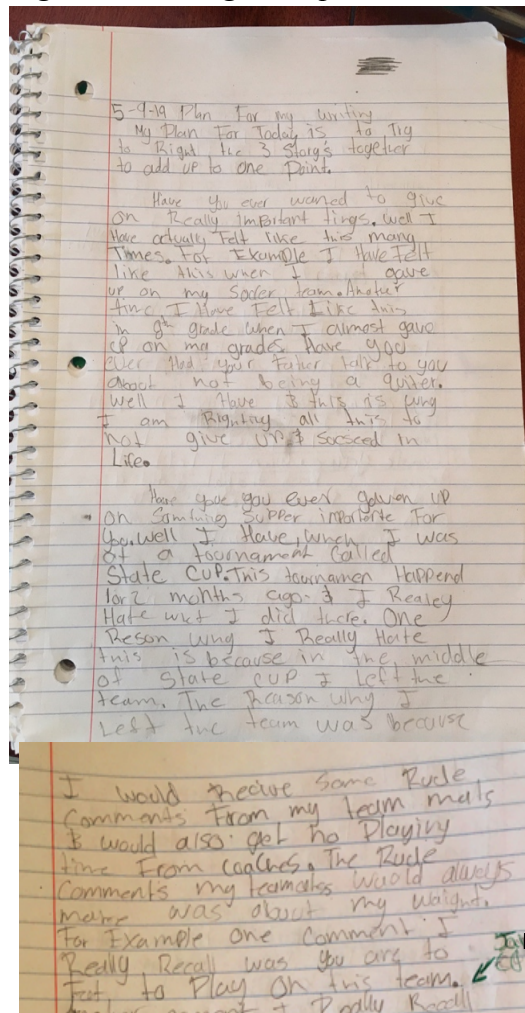 5-9-19 Plan For my writing
My Plan For Today is to Try
to Right the 3 Storys together
to add up to one Point.
Have you ever waned to give
on Really Important tings. Well I
Have actually Felt like this many
Times. For Example I Have Felt
like this when I gave
up on my Socler team. Another
time I Have Felt Like this
in 8th grade when I allmost gave
up on my grades. Have you
ever Had your Father talk to you
about not being a quiter.
Well I Have & this is why
I am Righting all this to
not give up & socseed in
Life.
Have you ever gowen up
on Somthing Supper importante For
you. Well I Have, when I was
at a tournament Called
State CUP. This tournamen Happend
1or2 months ago & I Realey
Hate wht I did there. One
Reson why I Really Hate
this is because in the middle
of State CUP I Left the
team. The Reason why I
Left the team was because
I would Recive Some Rude
Comments From my team mats
& would also get no Playing
time From Coaches. The Rude
Comments my teamates would always
make was about my waight.
For Example one Comment I
Really Recall was you are to
Fat to Play on this team.
comment I Really Recall